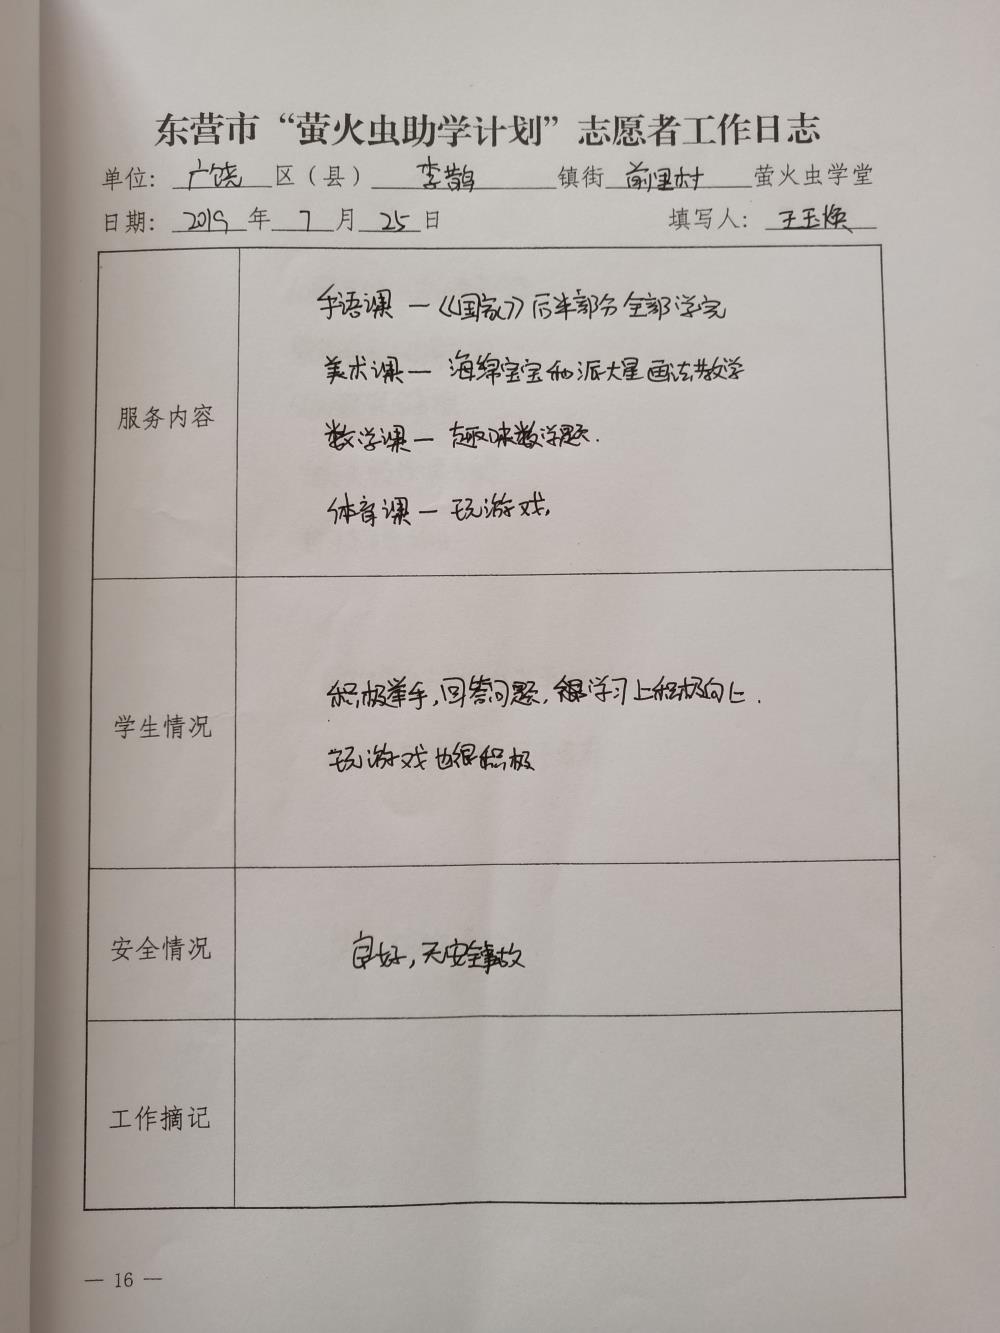 东营市“萤火虫助学计划”志愿者工作日志
单位：广饶区（县）李鹊镇街前里村萤火虫学堂
日期：2019年7月25日 填写人：王玉焕
服务内容
手语课 — 《国家》后半部分全部学完
美术课 — 海绵宝宝和派大星画法教学
数学课 — 趣味数学题.
体育课 — 玩游戏.
学生情况
积极举手,回答问题,学习上积极向上.
玩游戏也很积极
安全情况
良好,无安全事故
工作摘记
— 16 —